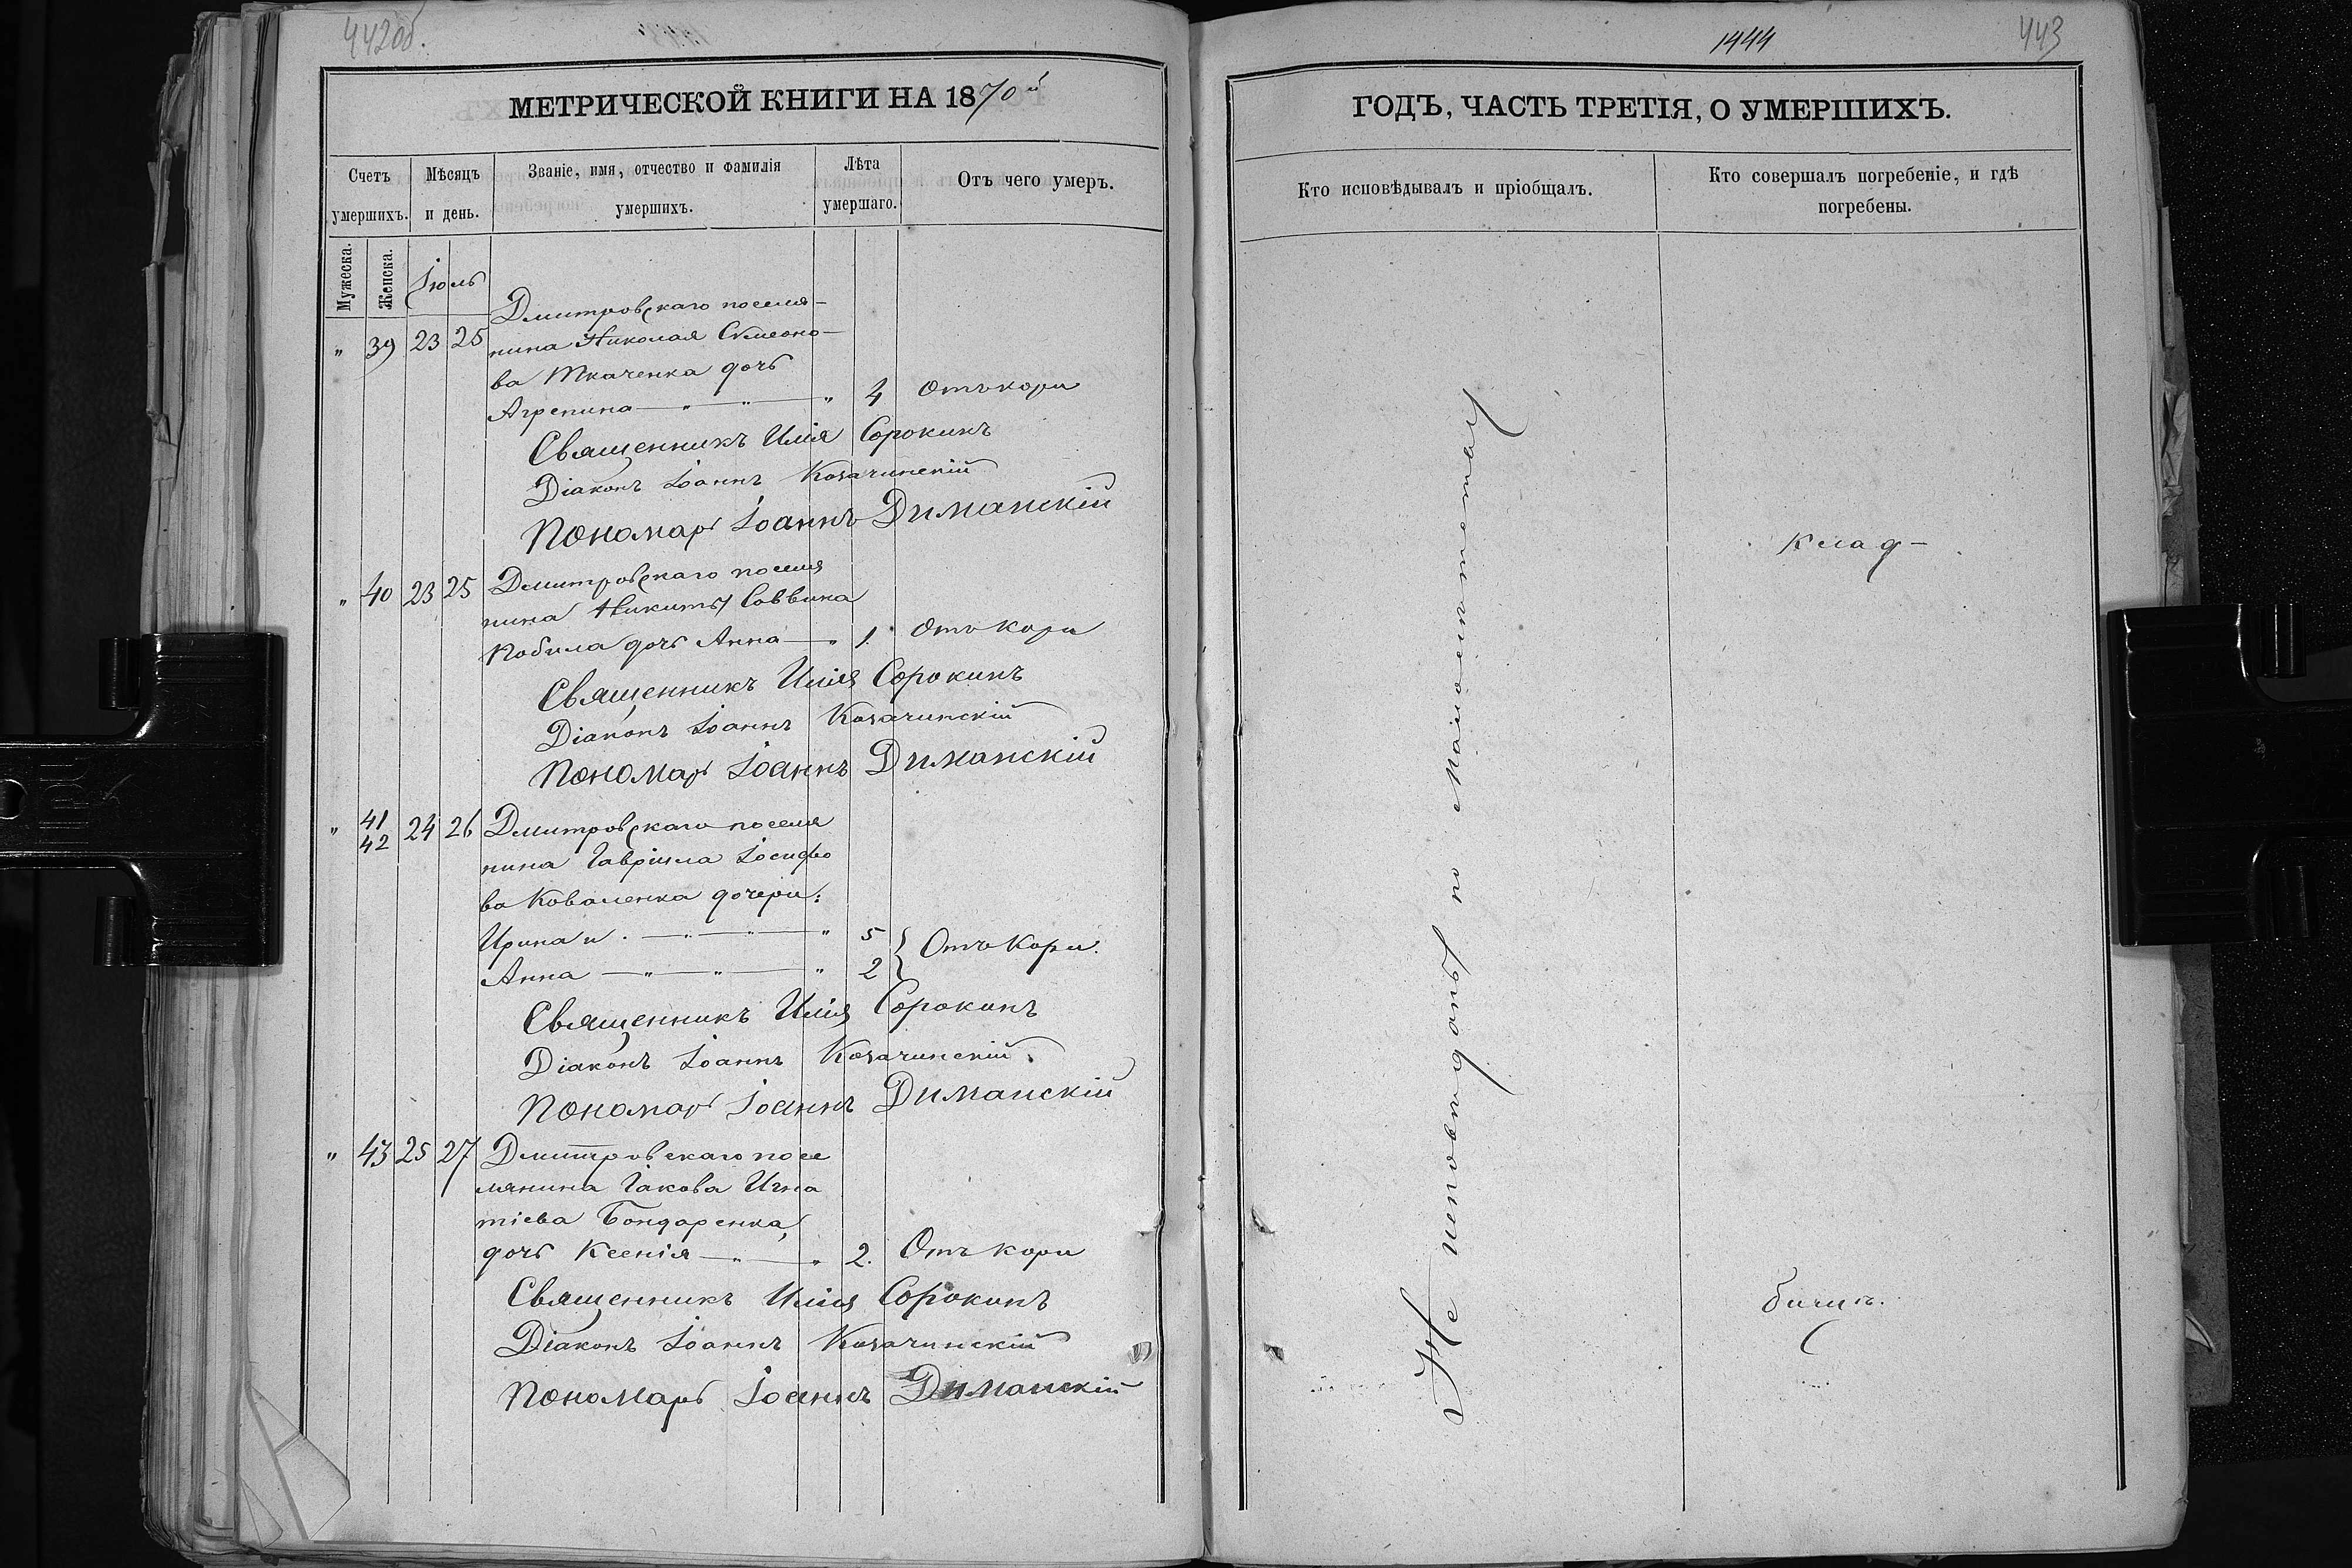 442об.
МЕТРИЧЕСКОЙ КНИГИ НА 1870й
Счетъ умершихъ.
Мѣсяцъ и день.
Званіе, имя, отчество и фамилія умершихъ.
Лѣта умершаго.
Отъ чего умеръ.
Мужеска.
Женска.
Іюль
Дмитровскаго поселя-
" 39 23 25 нина Николая Симеоно-
ва Ткаченка дочь
Агрепина — " — " — " 4 Отъ кори
Священникъ Илія Сорокинъ
Діаконъ Іоаннъ Козачинскій
Пономарь Іоаннъ Диманскій
" 40 23 25 Дмитровскаго поселя
нина Никиты Саввина
Кобила дочь Анна — " 1. Отъ Кори
Священникъ Илія Сорокинъ
Діаконъ Іоаннъ Козачинскій
Пономарь Іоаннъ Диманскій
" 41 42 24 26 Дмитровскаго поселя
нина Гавріила Іосифо
ва Коваленка дочери:
Ирина и. — " — " — " 5
Анна — " — " — " 2 } Отъ Кори.
Священникъ Илія Сорокинъ
Діаконъ Іоаннъ Козачинскій.
Пономарь Іоаннъ Диманскій
" 43 25 27 Дмитровскаго посе
лянина Іакова Игна
тіева Бондаренка,
дочь Ксенія — " — " 2. Отъ кори
Священникъ Илія Сорокинъ
Діаконъ Іоаннъ Козачинскій
Пономарь Іоаннъ Диманскій
1444
443
ГОДЪ, ЧАСТЬ ТРЕТІЯ, О УМЕРШИХЪ.
Кто исповѣдывалъ и пріобщалъ.
Кто совершалъ погребеніе, и гдѣ погребены.
Не исповѣданы по малолѣтству
Клад-
бищѣ.